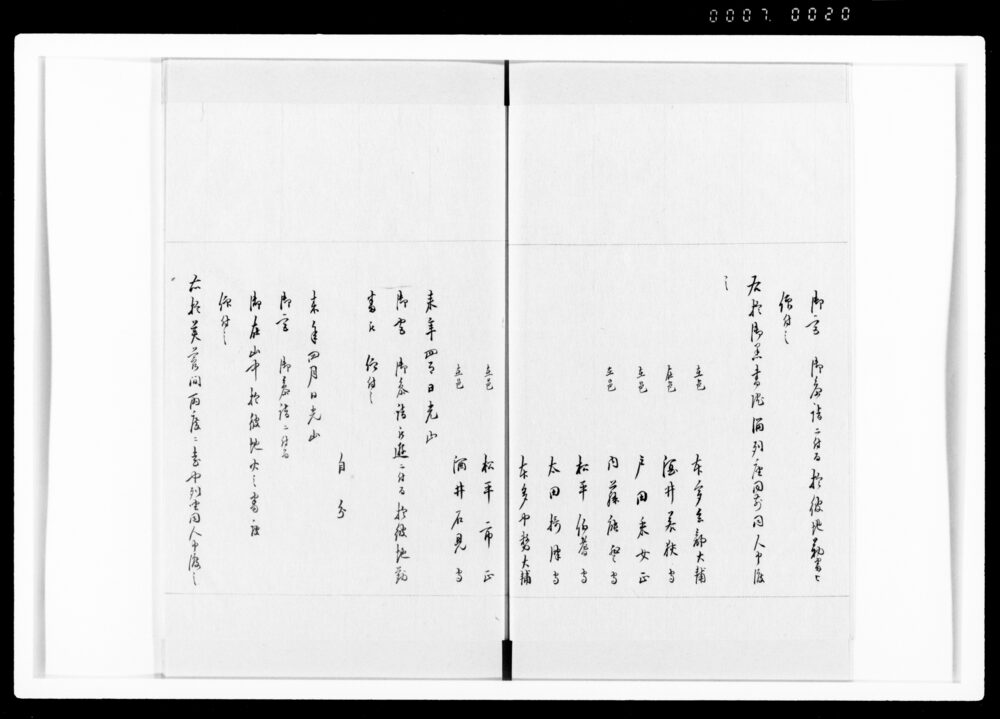 0007. 0020
御宮 御参詣ニ付而於彼地勤番被
仰付之
右於御黒書院溜列座同前同人申渡
之
在邑 本多兵部大輔
在邑 酒井若狭守
在邑 戸田采女正
在邑 内藤能登守
松平伯耆守
太田摂津守
本多中務大輔
在邑 松平市正
在邑 酒井石見守
来年四月日光山
御宮 御参詣還ニ付而於彼地勤
番 仰付之
自分
来年四月日光山
御宮 御参詣ニ付而
御在山中於彼地火之番被
仰付之
右於芙蓉間両度ニ老中列座同人申渡之